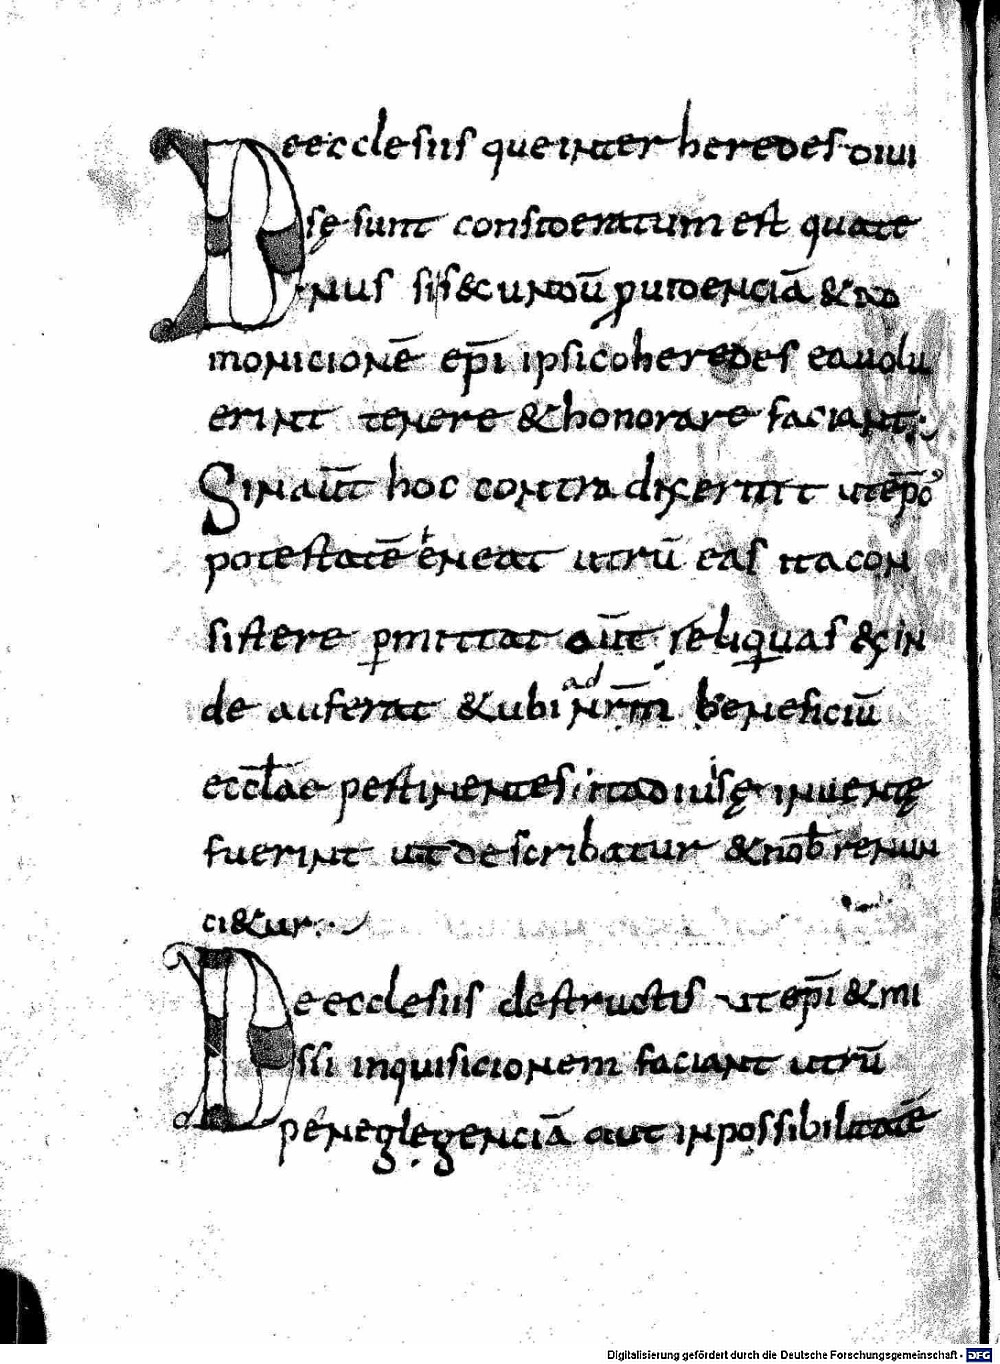 De ecclesiis que inter heredes diui
sę sunt consideratum est quate
nus si secundū prouidenciā & ad
monicionē ep̄i ipsi coheredes ea uolu
erint tenere & honorare faciant;
Sin aūt hoc contradixerint ut ep̄o
potestatē eneat utrū eas ita con
sistere ꝑmittat aūt reliquas & in
de auferat & ubi ad nr̄m beneficiū
eccl̄ae pertinentes ita diuisę inuentę
fuerint ut describatur & nob̄ renun
ci&ur
De ecclesiis destructis ut ep̄i & mi
ssi inquisicionem faciant utrū
per neglegenciā aut inpossibilitatē
Digitalisierung gefördert durch die Deutsche Forschungsgemeinschaft - DFG